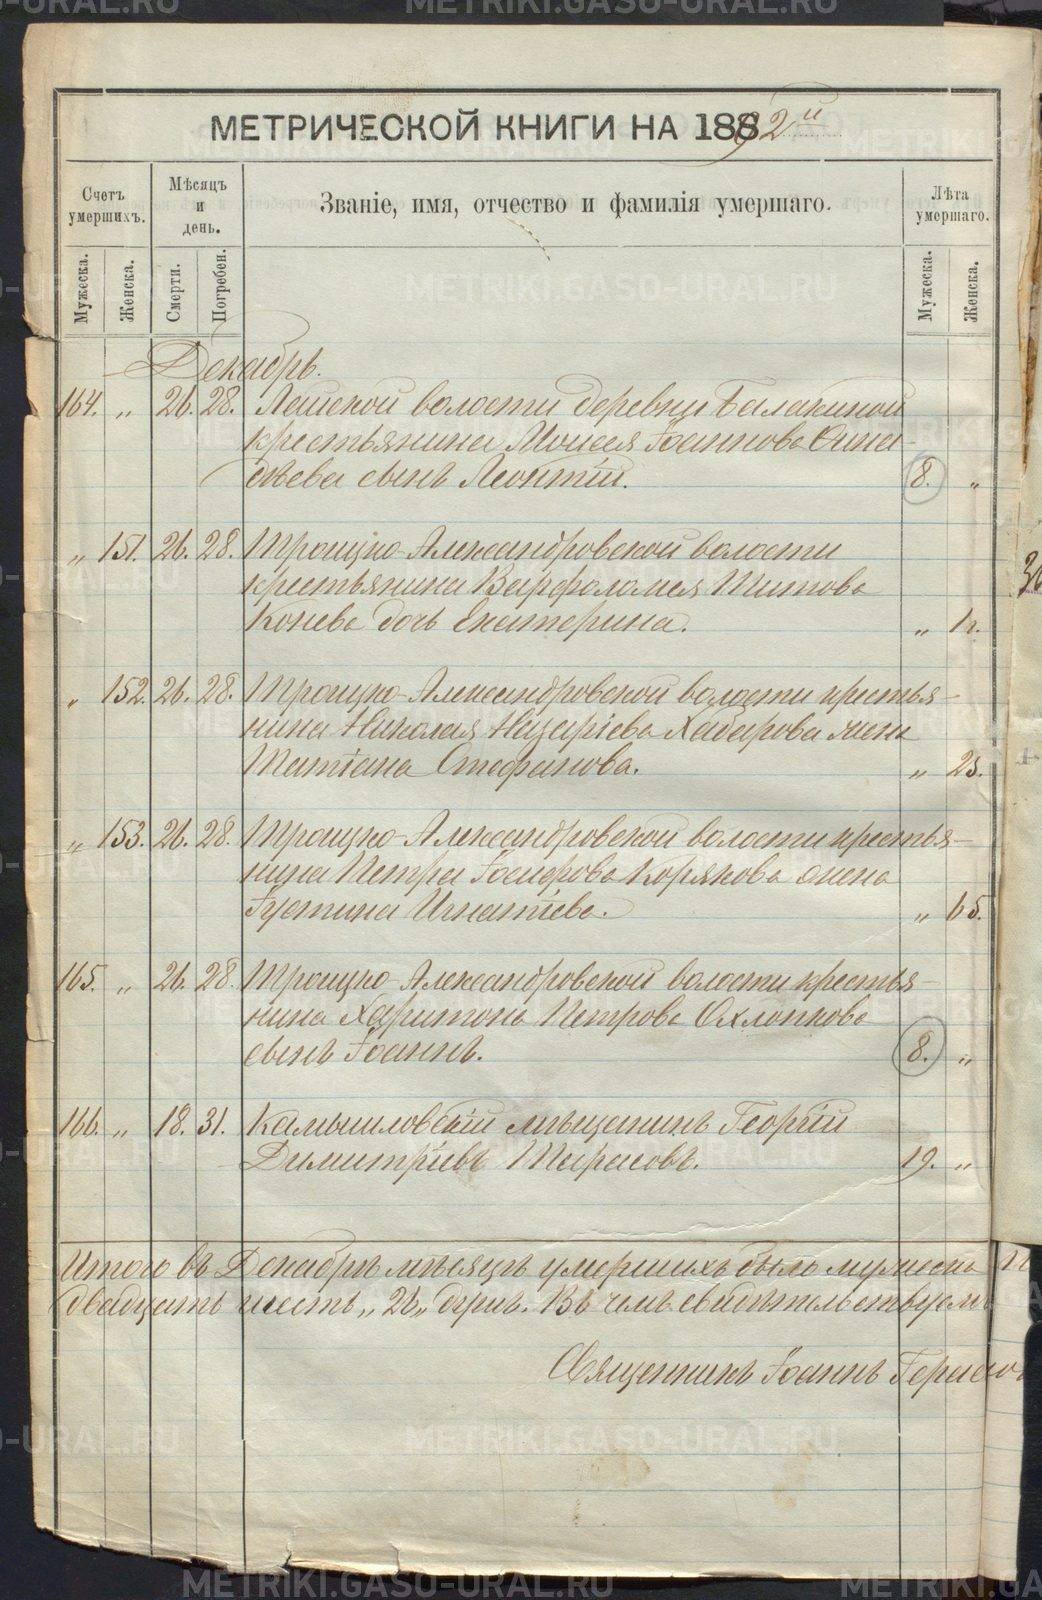 МЕТРИЧЕСКОЙ КНИГИ НА 1892й
Счетъ умершихъ.
Мѣсяцъ и день.
Званіе, имя, отчество и фамилія умершаго.
Лѣта умершаго.
Мужеска.
Женска.
Смерти.
Погребен.
Мужеска.
Женска.
Декабрь.
164. „ 26. 28. волости деревни Балакиной
крестьянина Моисея Іоаннова
сынъ Леонтій. 8. „
„ 151. 26. 28. Троицко-Александровской волости
крестьянина Варфоломея Титова
Конева дочь Екатерина. „
„ 152. 26. 28. Троицко-Александровской волости крестья-
нина Николая Назаріева Хабарова жена
Татіана Стефанова. „ 25.
„ 153. 26. 28. Троицко-Александровской волости крестья-
нина Петра Іосифова Корякова жена
Іустина Игнатіева. „ 65.
165. „ 26. 28. Троицко-Александровской волости крестья-
нина Харитона Петрова Охлопкова
сынъ Іоаннъ. 8. „
166. „ 18. 31. Камышловскій мѣщанинъ Георгій
Димитріевъ Тарасовъ. 19. „
Итого въ Декабрѣ мѣсяцѣ умершихъ было мужеска
двадцать шесть „26„ душъ. Въ чемъ свидѣтельствуемъ
Священникъ Іоаннъ
METRIKI.GASO-URAL.RU